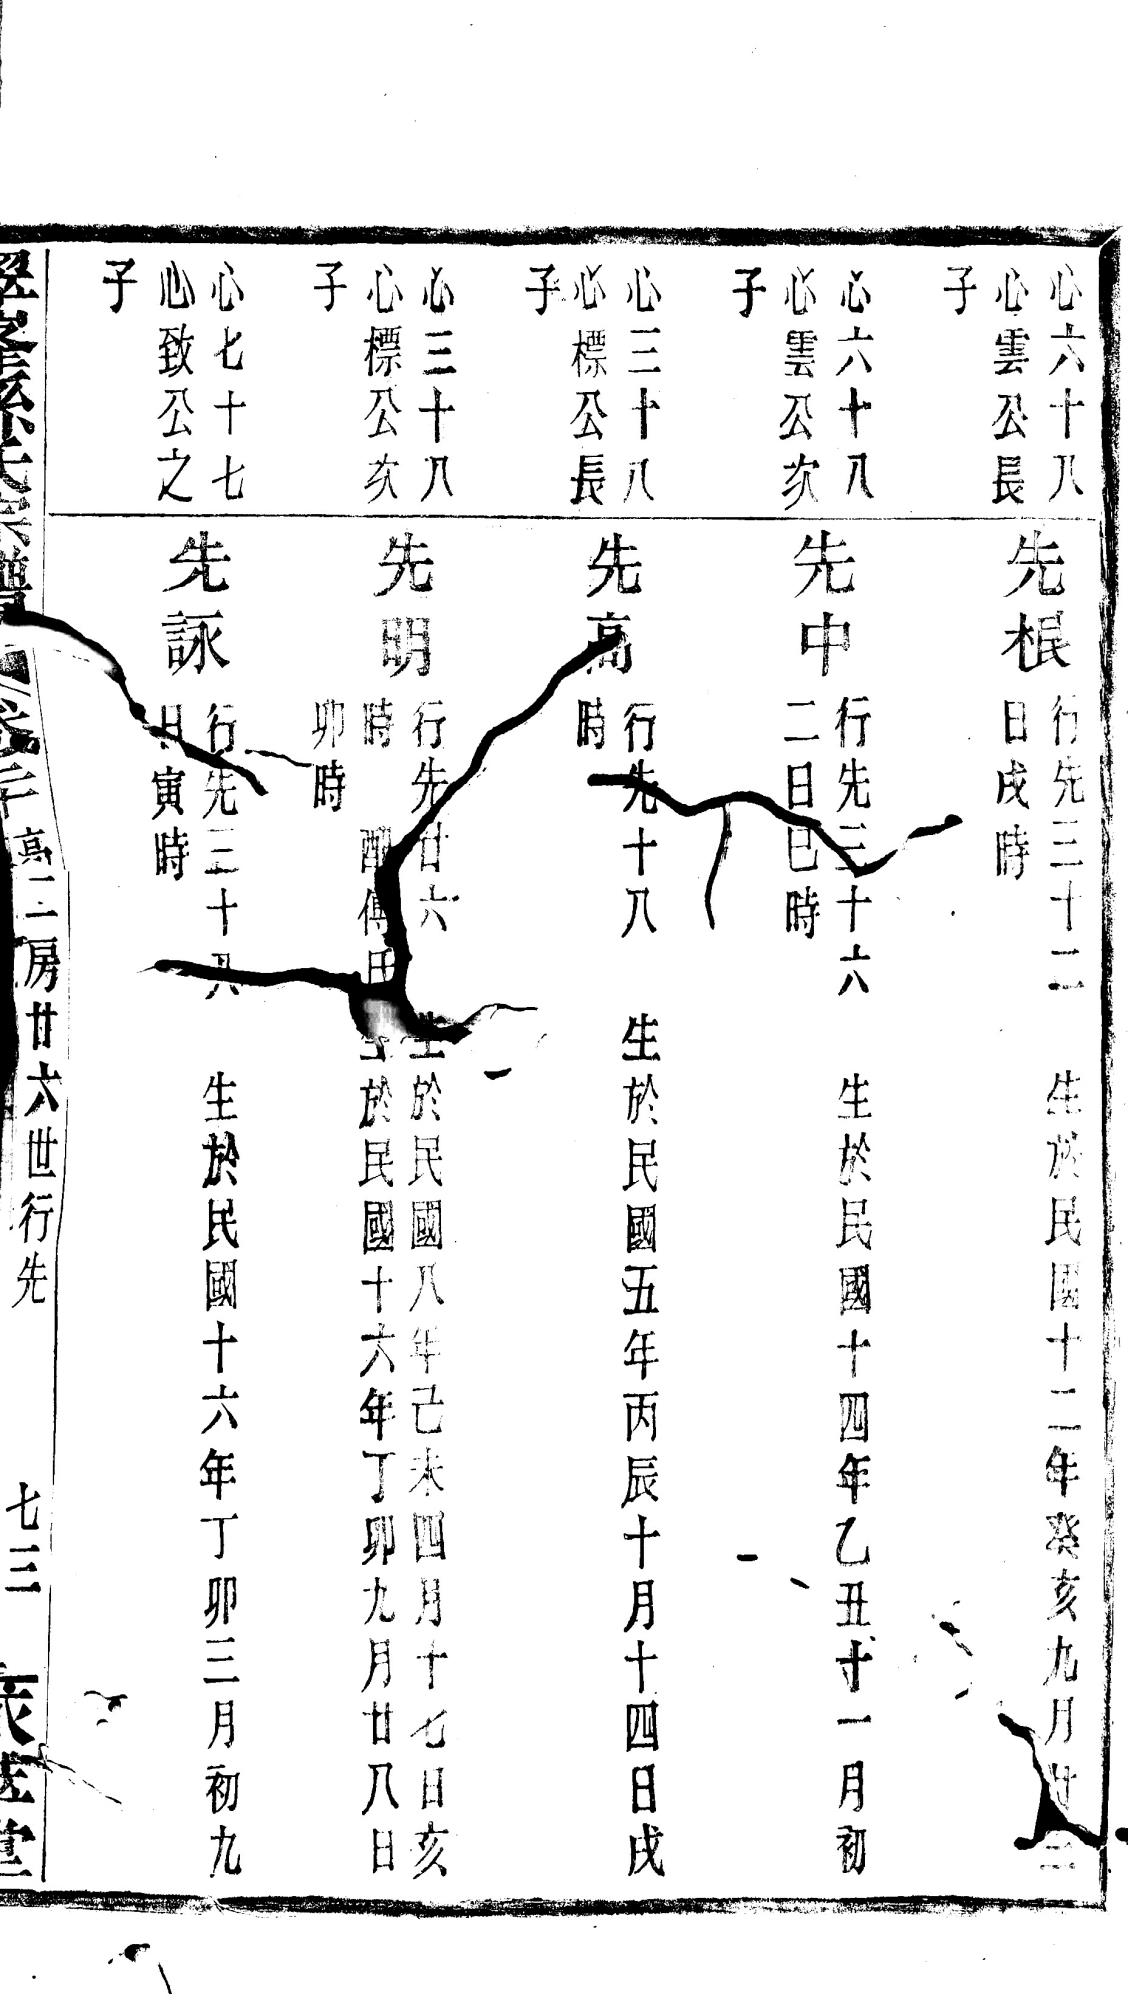 心六十八
心雲公長
子
先根
行先三十二 生於民國十二年癸亥九月廿二
日戌時
心六十八
心雲公次
子
先中
行先三十六 生於民國十四年乙丑十一月初
二日巳時
心三十八
心標公長
子
先高
行先十八 生於民國五年丙辰十月十四日戌
時
心三十八
心標公次
子
先明
行先廿六 生於民國八年己未四月十七日亥
時 配傅氏 生於民國十六年丁卯九月廿八日
卯時
心七十七
心致公之
子
先詠
行先三十八 生於民國十六年丁卯三月初九
日寅時
氏宗譜 卷二 高二房廿六世行先 七三 堂